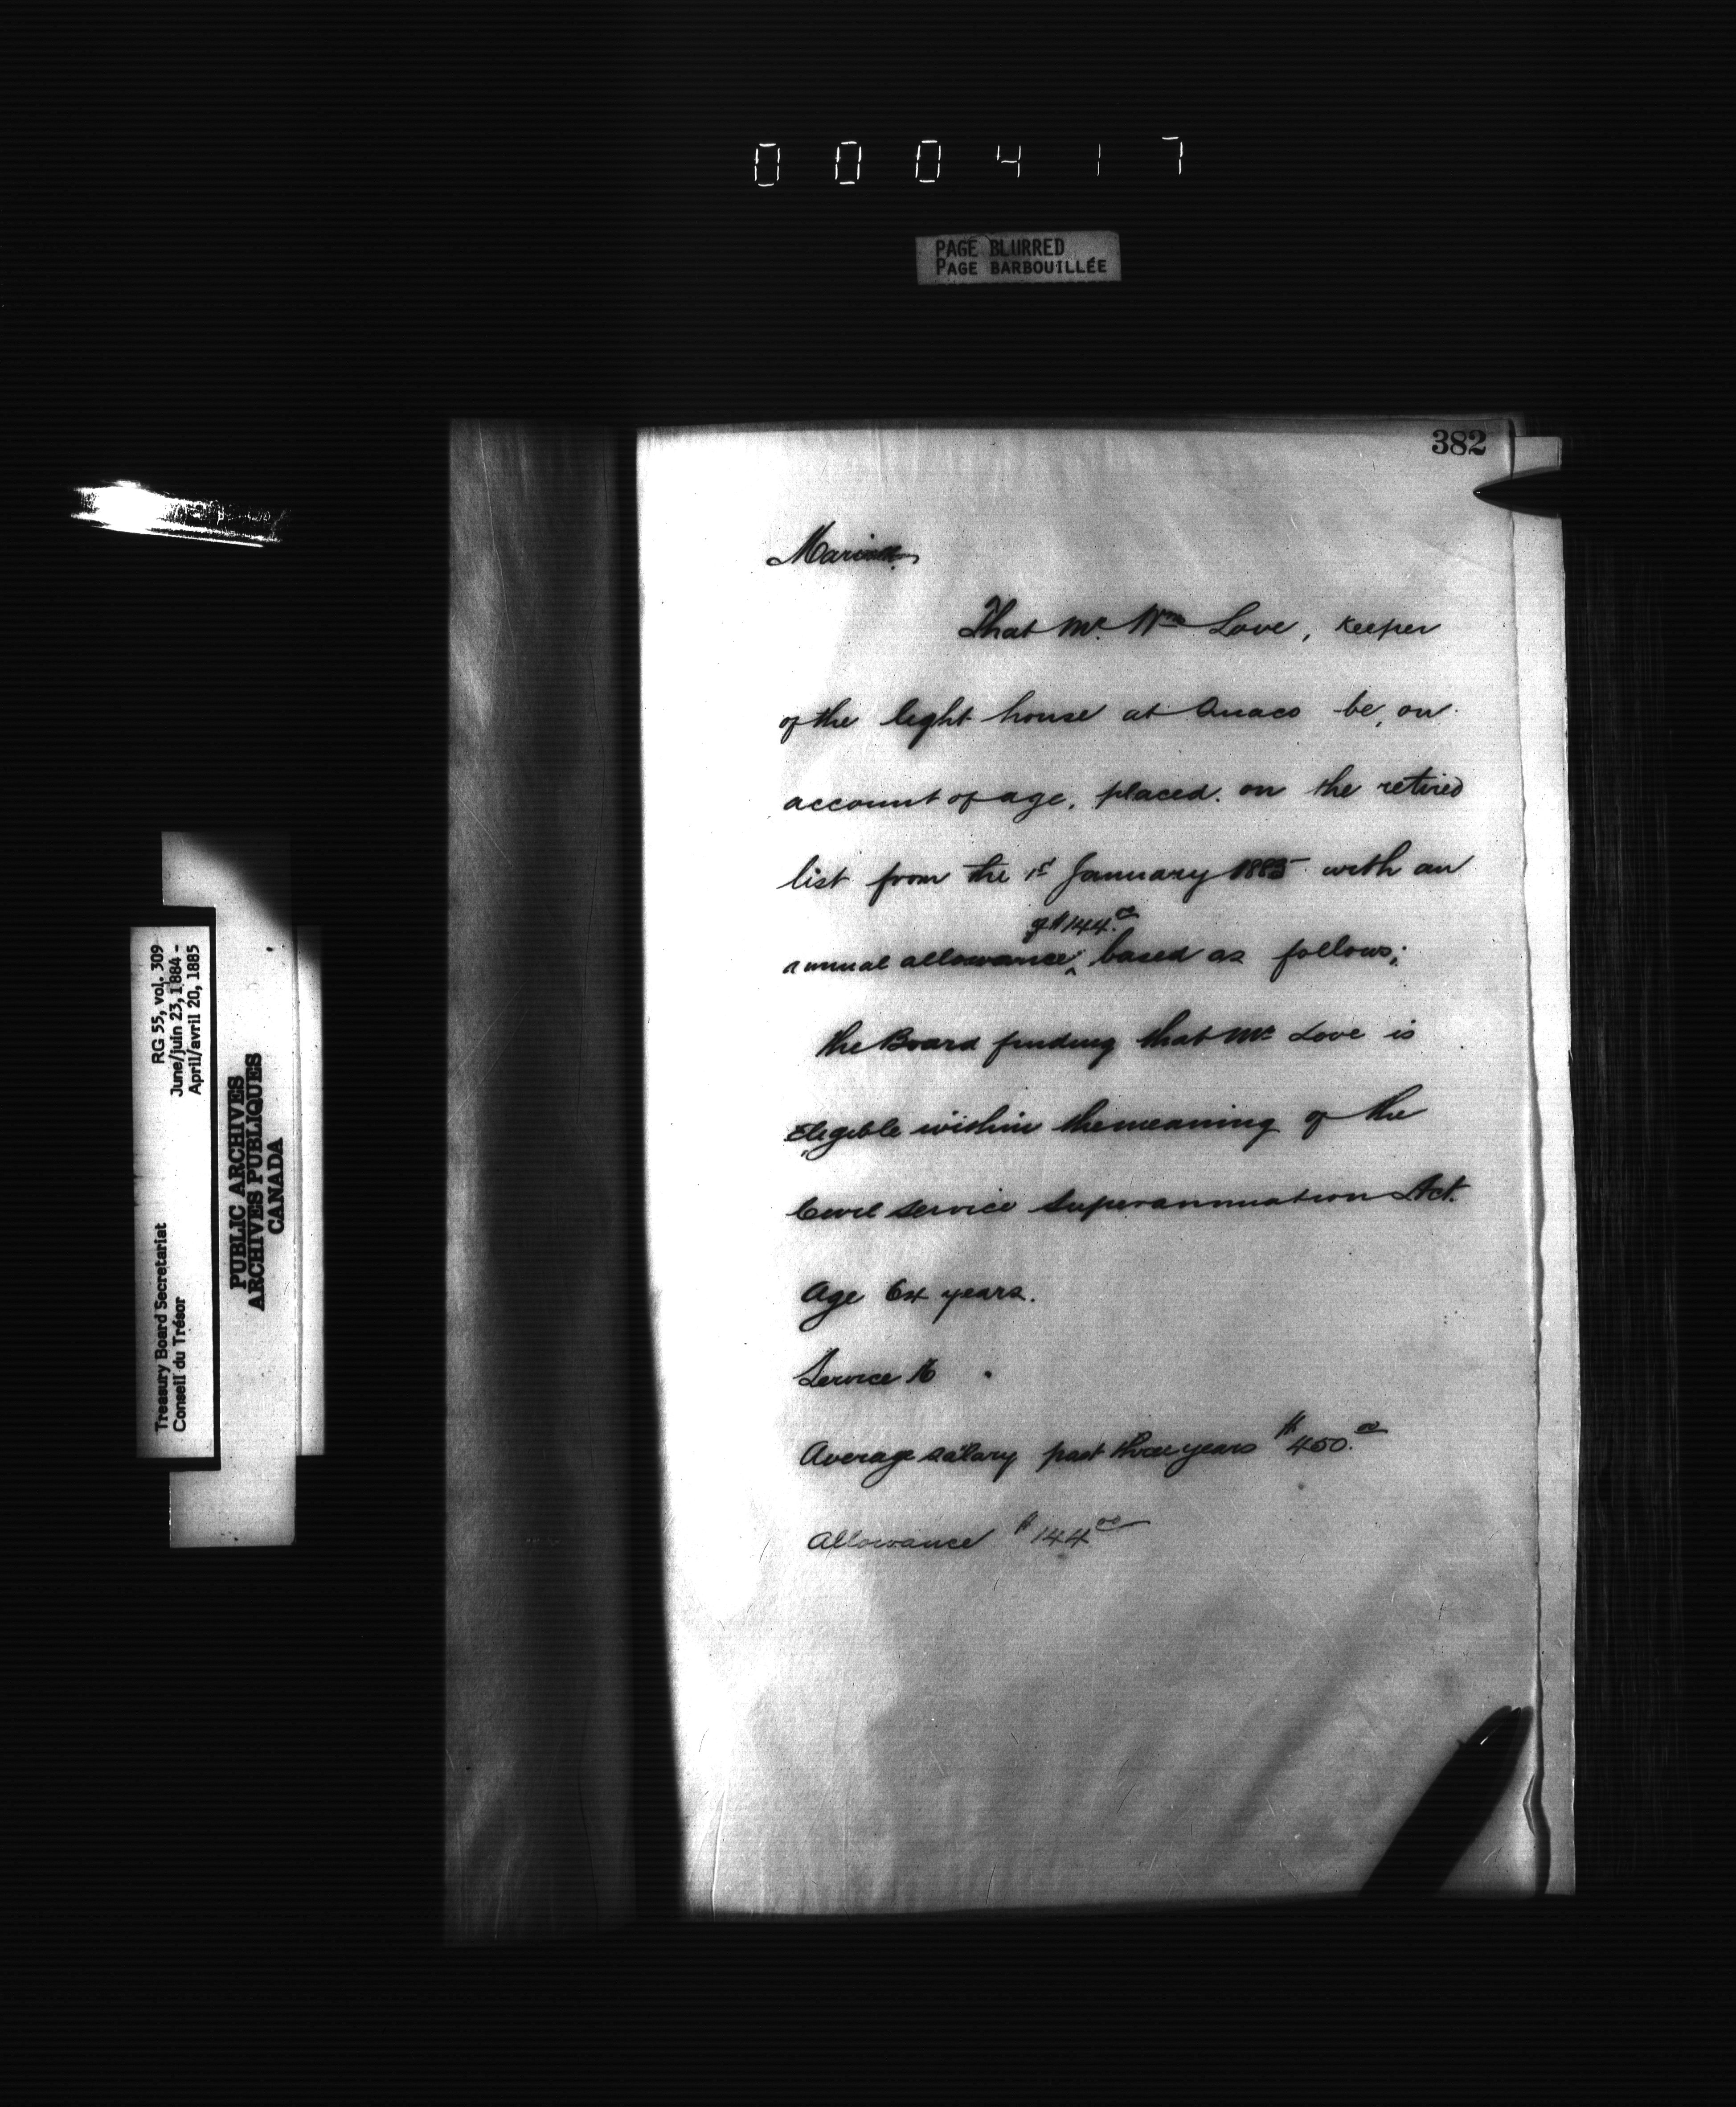 000417
PAGE BLURRED
PAGE BARBOUILLÉE
382
RG 55, vol. 309
June/juin 23, 1884 -
April/avril 20, 1885
Treasury Board Secretariat
Conseil du Trésor
PUBLIC ARCHIVES
ARCHIVES PUBLIQUES
CANADA
Marine.
That Mr. Wm Love, Keeper
of the light house at Quaco be, on
account of age, placed on the retired
list from the 1st January 1885 with an
of $144.00
annual allowance ‸ based as follows;
the Board finding that Mr Love is
Eligible within the meaning of the
Civil Service Superannuation Act.
Age 64 years.
Service 16 "
Average salary past three years $450.00
Allowance $144.00